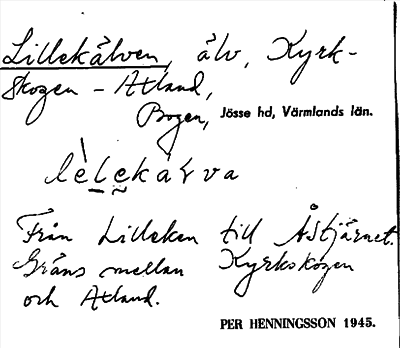 Lillekälven, älv, Kyrk-
skogen - Åtland,
Bogen, Jösse hd, Värmlands län.
lèlekàrva
Från Lilleken till Åstjärnet.
Gräns mellan Kyrkskogen
och Åtland.
PER HENNINGSSON 1945.